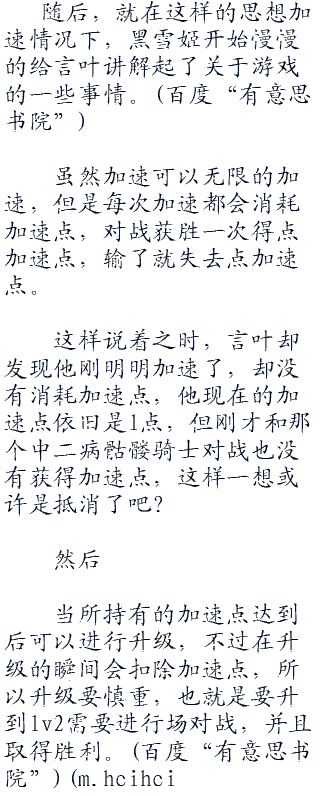 随后，就在这样的思想加
速情况下，黑雪姬开始慢慢
的给言叶讲解起了关于游戏
的一些事情。(百度“有意思
书院”)
虽然加速可以无限的加
速，但是每次加速都会消耗
加速点，对战获胜一次得点
加速点，输了就失去点加速
点。
这样说着之时，言叶却
发现他刚明明加速了，却没
有消耗加速点，他现在的加
速点依旧是1点，但刚才和那
个中二病骷髅骑士对战也没
有获得加速点，这样一想或
许是抵消了吧?
然后
当所持有的加速点达到
后可以进行升级，不过在升
级的瞬间会扣除加速点，所
以升级要慎重，也就是要升
到lv2需要进行场对战，并且
取得胜利。(百度“有意思书
院”)(m.hcihci